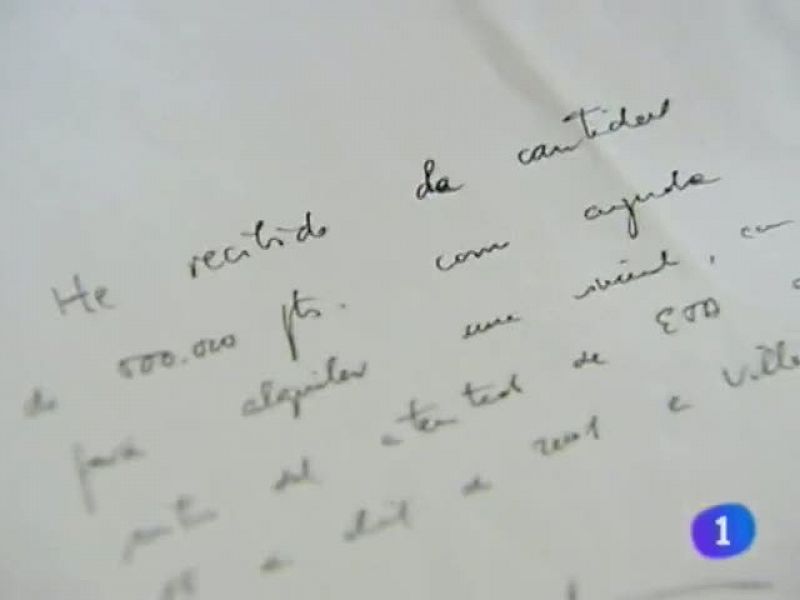 He recibido la cantidad
de 500.000 pts. como ayuda
para alquiler una viviend, con
del atentad de ETA
de abril de 2001 e Villa
1